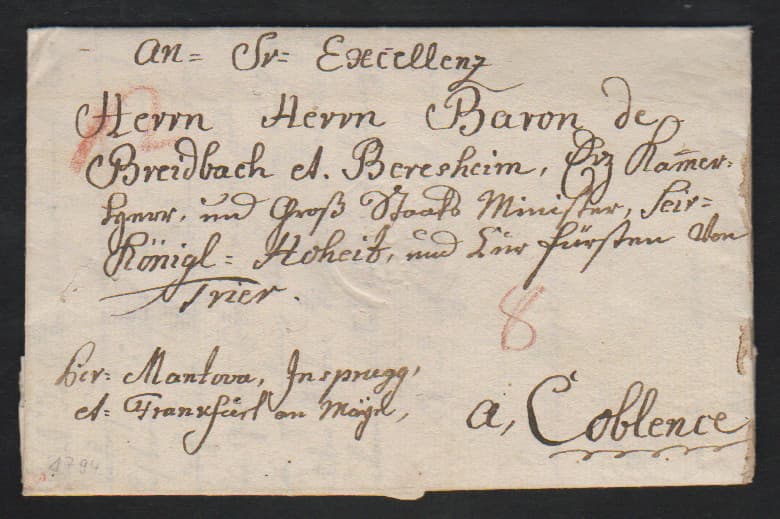 An= Sr= Excellenz
12
Herrn Herrn Baron de
Breidbach et. Beresheim, Erz Kam̄er=
Herr, und Groß Staats Minister, Seir=
Königl= Hoheit, und Cur fürsten Von
Trier.
8
per= Mantova, Insprugg,
et= Franckfurt an Mayn,
a, Coblence
1794